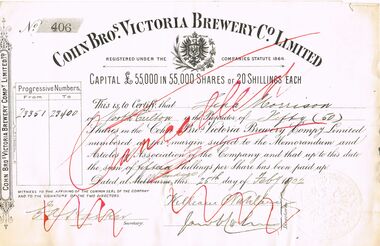 No 406
COHN BROS. VICTORIA BREWERY CO. LIMITED
REGISTERED UNDER THE COMPANIES STATUTE 1864
CAPITAL £55,000 IN 55,000 SHARES OF 20 SHILLINGS EACH
Progressive Numbers.
FROM TO
23351 23400
This is to Certify that Morrison
of North Carlton is the Proprietor of Fifty (50)
Shares in the Cohn Bros Victoria Brewery Compy Limited
numbered as in margin subject to the Memorandum and
Articles of Association of the Company and that up to this date
the sum of Shillings per Share has been paid up
Dated at Melbourne this 25th day of
Cancelled
WITNESS TO THE AFFIXING OF THE COMMON SEAL OF THE COMPANY
AND TO THE SIGNATURE OF THE TWO DIRECTORS
Secretary.
COHN BROS VICTORIA BREWERY COMPY LIMITED